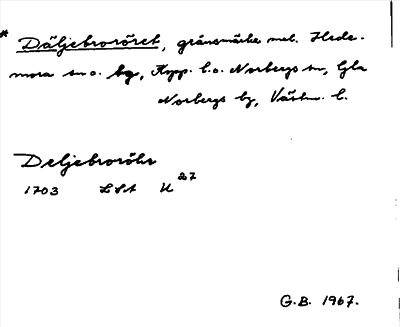 * Däljebroröret, gränsmärke mel. Hede-
mora sn o. by, Kopp. l. o. Norbergs sn, Gla
Norbergs by, Västm. l.
Deljebroröhr
1703 LSA U 27
G.B. 1967.